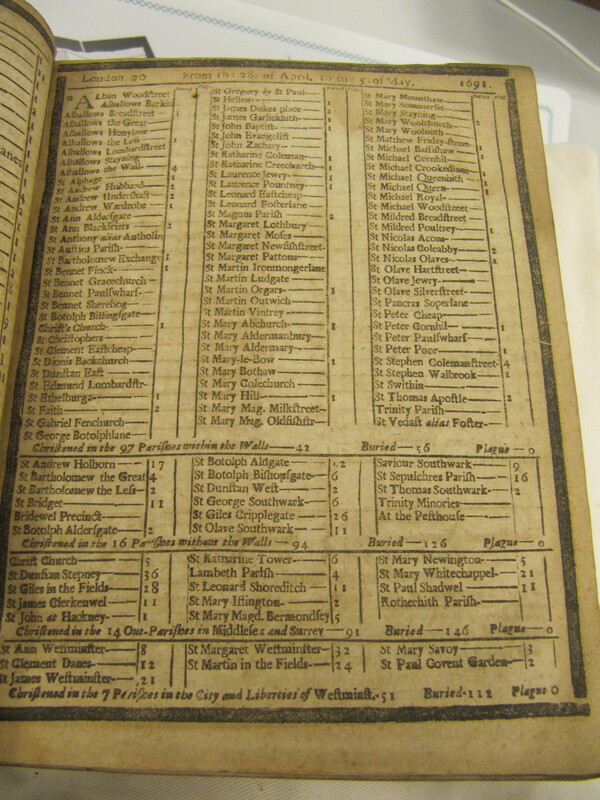 London 20 From the 28. of April, to the 5. of May. 1691.
St Alban Woodstreet
Alhallows Barkin
Alhallows Breadstreet 1
Alhallows the Great
Alhallows Honylane
Alhallows the Less 1
Alhallows Lombardstreet
Alhallows Stayning
Alhallows the Wall 4
St Alphage 1
St Andrew Hubbard 2
St Andrew Undershaft 2
St Andrew Wardrobe 1
St Ann Aldersgate
St Ann Blackfriers 2
St Anthony alias Antholin
St Austins Parish
St Bartholomew Exchange 1
St Bennet Finck 1
St Bennet Gracechurch
St Bennet Paulswharf
St Bennet Sherehog
St Botolph Billingsgate
Christ's Church 1
St Christophers
St Clement Eastcheap
St Dionis Backchurch
St Dunstan East
St Edmund Lombardstr
St Ethelburga 1
St Faith 2
St Gabriel Fenchurch
St George Botolphlane
St Gregory by St Paul
St Hellen 1
St James Dukes place 2
St James Garlickhith 1
St John Baptist 1
St John Evangelist
St John Zachary
St Katharine Coleman 1
St Katharine Creechurch 1
St Laurence Jewry 1
St Laurence Pountney 1
St Leonard Eastcheap
St Leonard Fosterlane
St Magnus Parish 2
St Margaret Lothbury
St Margaret Moses
St Margaret Newfishstreet
St Margaret Pattons
St Martin Ironmongerlane
St Martin Ludgate
St Martin Orgars 1
St Martin Outwich
St Martin Vintrey
St Mary Abchurch 1
St Mary Aldermanbury
St Mary Aldermary
St Mary-le-Bow 1
St Mary Bothaw
St Mary Colechurch
St Mary Hill 1
St Mary Mag. Milkstreet
St Mary Mag. Oldfishstr
St Mary Mounthaw
St Mary Sommerset
St Mary Stayning
St Mary Woolchurch 2
St Mary Woolnoth
St Matthew Friday-street
St Michael Bassishaw 1
St Michael Cornhil
St Michael Crookedlane 1
St Michael Queenhith 1
St Michael Quern
St Michael Royal
St Michael Woodstreet
St Mildred Breadstreet
St Mildred Poultrey 1
St Nicolas Acons
St Nicolas Coleabby 2
St Nicolas Olaves 1
St Olave Hartstreet
St Olave Jewry
St Olave Silverstreet
St Pancras Soperlane
St Peter Cheap
St Peter Cornhil 1
St Peter Paulswharf
St Peter Poor 1
St Stephen Colemanstreet 4
St Stephen Walbrook 1
St Swithin
St Thomas Apostle 2
Trinity Parish
St Vedast alias Foster
Christened in the 97 Parishes within the Walls 42 Buried 56 Plague 0
St Andrew Holborn 17
St Bartholomew the Great 4
St Bartholomew the Less 2
St Bridget 11
Bridewel Precinct
St Botolph Aldersgate 2
St Botolph Aldgate
St Botolph Bishopsgate 6
St Dunstan West 2
St George Southwark 6
St Giles Cripplegate 26
St Olave Southwark 11
Saviour Southwark 9
St Sepulchres Parish 16
St Thomas Southwark 2
Trinity Minories
At the Pesthouse
Christened in the 16 Parishes without the Walls 94 Buried 126 Plague 0
Christ Church 5
St Dunstan Stepney 36
St Giles in the Fields 28
St James Clerkenwel 11
St John at Hackney 1
St Katharine Tower 6
Lambeth Parish 4
St Leonard Shoreditch 11
St Mary Islington 2
St Mary Magd. Bermondsey 5
St Mary Newington 5
St Mary Whitechappel 21
St Paul Shadwel 11
Rotherhith Parish
Christened in the 14 Out-Parishes in Middlesex and Surrey 91 Buried 146 Plague 0
St Ann Westminster 8
St Clement Danes 12
St James Westminster 21
St Margaret Westminster 32
St Martin in the Fields 24
St Mary Savoy 3
St Paul Covent Garden 2
Christened in the 7 Parishes in the City and Liberties of Westminst. 51 Buried 112 Plague 0